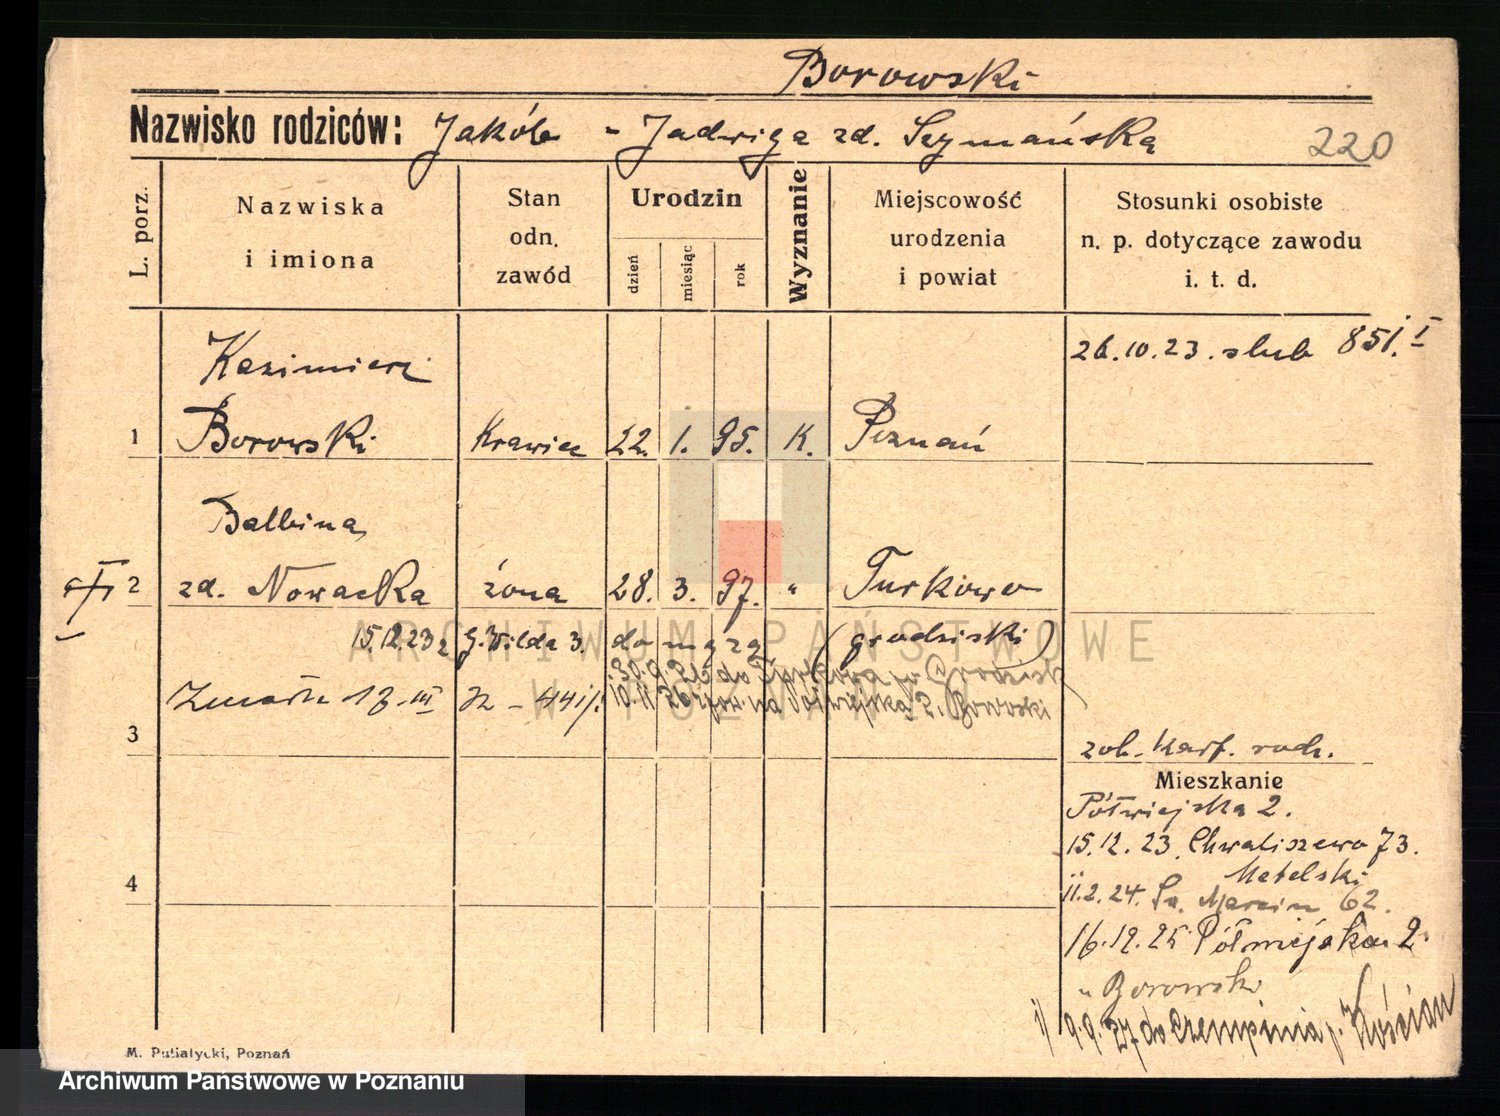 Borowski
Nazwisko rodziców: Jakób - Jadwiga zd. Szymańska 220
L. porz.
Nazwiska
i imiona
Stan
odn.
zawód
Urodzin
dzień
miesiąc
rok
Wyznanie
Miejscowość
urodzenia
i powiat
Stosunki osobiste
n. p. dotyczące zawodu
i. t. d.
Kazimierz 26.10.23. slub 851. I
1 Borowski Krawiec 22. 1. 95. K. Poznań
Balbina
2 zd. Nowacka żona 28. 3. 97. " Turkowo
15.12.23 z G. Wilda 3. do męża (grodziski)
30.9.26 do Turkowa p. Grodzisk
Zmarła 13. III 10.11 26 na Półwiejska 2. Borowski
3
zob. Kart. rodz.
Mieszkanie
Półwiejska 2.
15.12.23. Chwaliszewo 73.
Matelski
4
11.2.24. Św. Marcin 62.
16.12.25 Półwiejska 2.
u Borowski
1/ 9.9.27 do Czempinia p. Kościan
M. Putiatycki, Poznań
ARCHIWUM PAŃSTWOWE
W POZNANIU
Archiwum Państwowe w Poznaniu